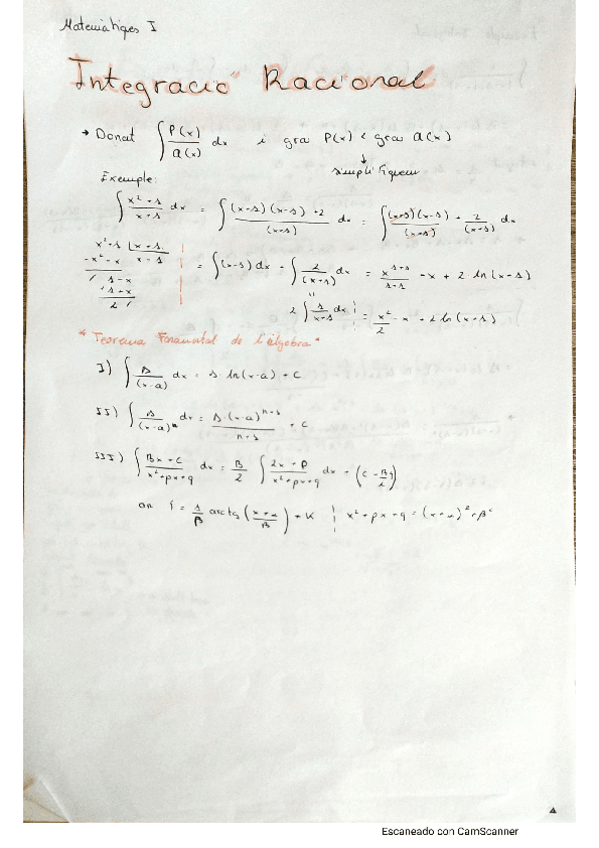 Matemàtiques I
Integració Racional
→ Donat ∫ P(x)/Q(x) dx i gra P(x) < gra Q(x)
↓
simplifiquem
Exemple:
∫ x²+1/x+1 dx = ∫ (x+1)(x-1)+2/(x+1) dx = ∫ (x+1)(x-1)/(x+1) + 2/(x+1) dx
x²+1 | x+1
-x²-x x-1
/ 1-x
1+x
2 /
= ∫(x-1) dx + ∫ 2/(x+1) dx = x^(1+1)/1+1 - x + 2 ln(x+1)
2 ∫ 1/x+1 dx = x²/2 - x + 2 ln(x+1)
"Teorema Fonamental de l'àlgebra"
I) ∫ A/(x-a) dx = A ln(x-a) + C
II) ∫ A/(x-a)ⁿ dx = A·(x-a)^(n+1)/n+1 + C
III) ∫ Bx+C/x²+px+q dx = B/2 ∫ 2x+P/x²+px+q dx + (C - B
on I = 1/β arctg (x+α/β) + K | x²+px+q = (x+α)²+β²
Escaneado con CamScanner